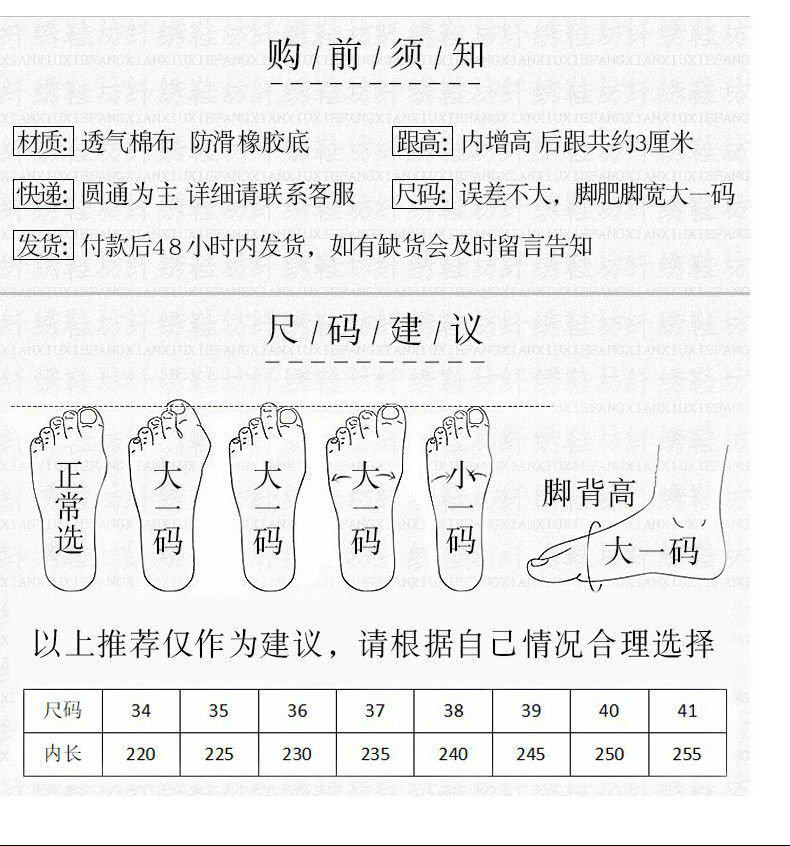 购/前/须/知
材质: 透气棉布 防滑橡胶底 跟高: 内增高 后跟共约3厘米
快递: 圆通为主 详细请联系客服 尺码: 误差不大，脚肥脚宽大一码
发货: 付款后48小时内发货，如有缺货会及时留言告知
尺/码/建/议
正常选 大一码 大一码 大一码 小一码 脚背高 大一码
以上推荐仅作为建议，请根据自己情况合理选择
尺码 34 35 36 37 38 39 40 41
内长 220 225 230 235 240 245 250 255